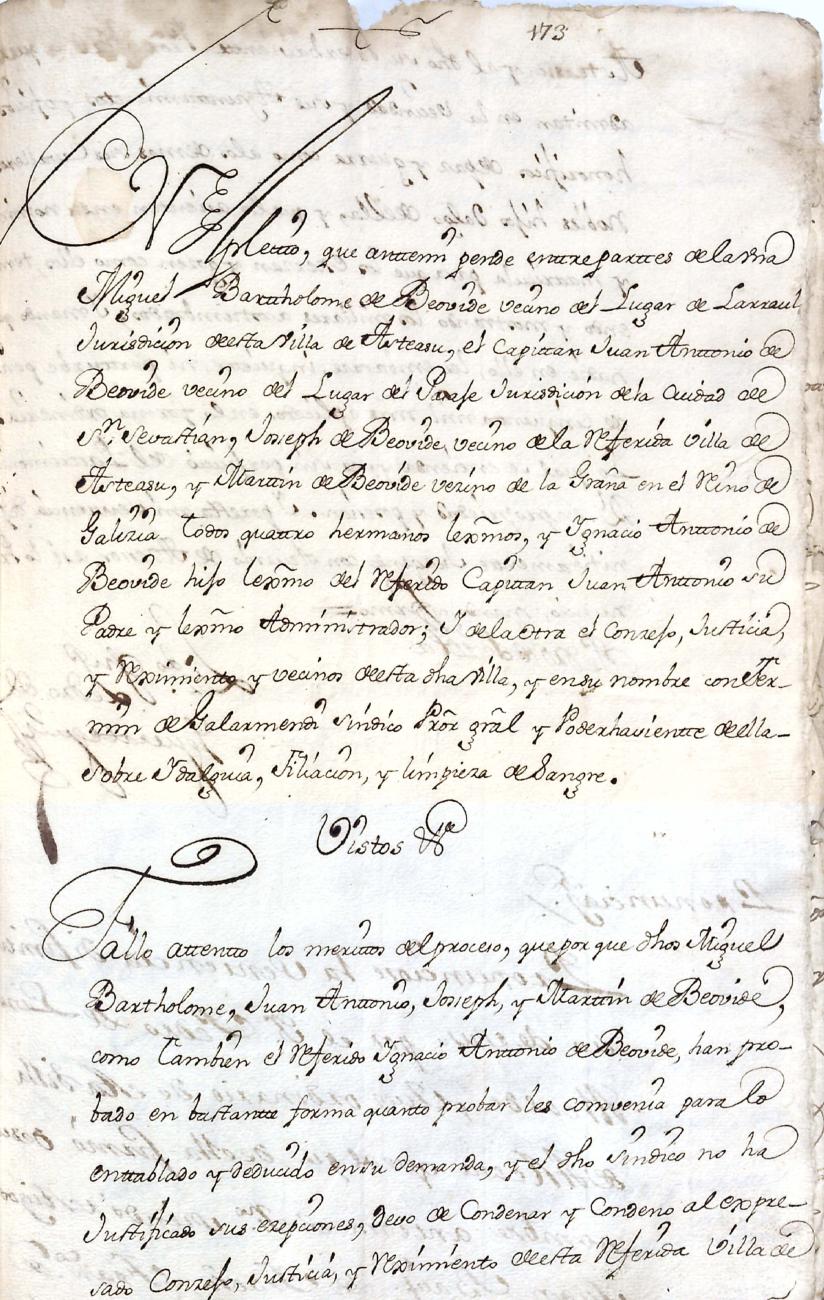 173
En El
pleitto, que anttemi pende enttre parttes de la vna
Miguel Barttholome de Beovide vecino del Lugar de Larraul
Jurisdicion de esta Villa de Asteasu, el Capittan Juan Anttonio de
Beovide vecino del Lugar del Pasaje Jurisdicion de la Ciudad de
Sn. Sevastian, Joseph de Beovide vecino de la Referida Villa de
Asteasu, y Marttin de Beovide vezino de la Graña en el Reino de
Galizia Todos quattro hermanos lexmos, y Ygnacio Anttonio de
Beovide hijo lexmo del Referido Capittan Juan Anttonio su
Padre y lexmo Administrador; Y de la otra el Conzejo, Justicia,
y Reximiento y vecinos de esta dha Villa, y en su nombre con Fer-
min de Galarmendi sindico Pror gral y Poderhavientte de ella-
sobre Ydalguia, Filiacion, y limpieza de Sangre.
Vistos &a
Fallo attentto los merittos del proceso, que por que dhos Miguel
Bartholome, Juan Anttonio, Joseph, y Marttin de Beovide,
como Tambien el Referido Ygnacio Anttonio de Beovide, han pro-
bado en bastantte forma quanto probar les convenia para lo
enttablado y deducido en su demanda, y el dho sindico no ha
Justificado sus exepciones, Devo de Condenar y Condeno al expre-
sado Conzejo, Justicia, y Reximiento de esta Referida Villa de